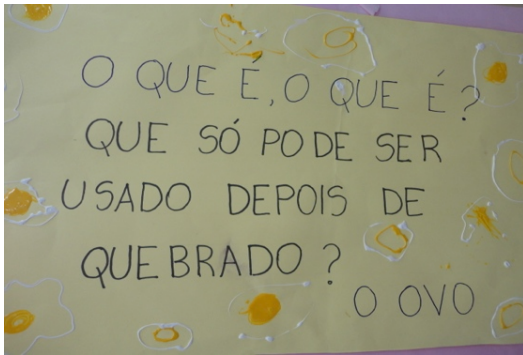 O QUE É, O QUE É?
QUE SÓ PODE SER
USADO DEPOIS DE
QUEBRADO?
O OVO